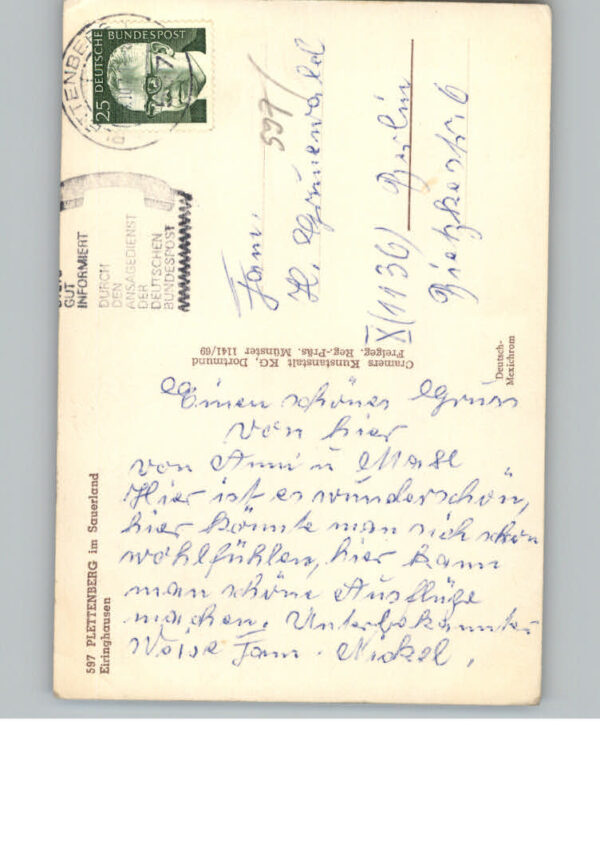 597 PLETTENBERG im Sauerland
Eiringhausen
Einen schönen Gruss
von hier
von Anni u
Hier ist es wunderschön,
hier könnte man sich schön
wohlfühlen, hier kann
man schöne Ausflüge
machen. Unterbekannter
Weise Fam. Nickel,
Cramers Kunstanstalt KG, Dortmund
Freigeg. Reg.-Präs. Münster 1141/69
Deutsch-
Mexichrom
PLETTENBERG
25 DEUTSCHE BUNDESPOST
GUT
INFORMIERT
DURCH
DEN
ANSAGEDIENST
DER
DEUTSCHEN
BUNDESPOST
597/
Fam.
H. Grunewald
X(1136) Berlin
6